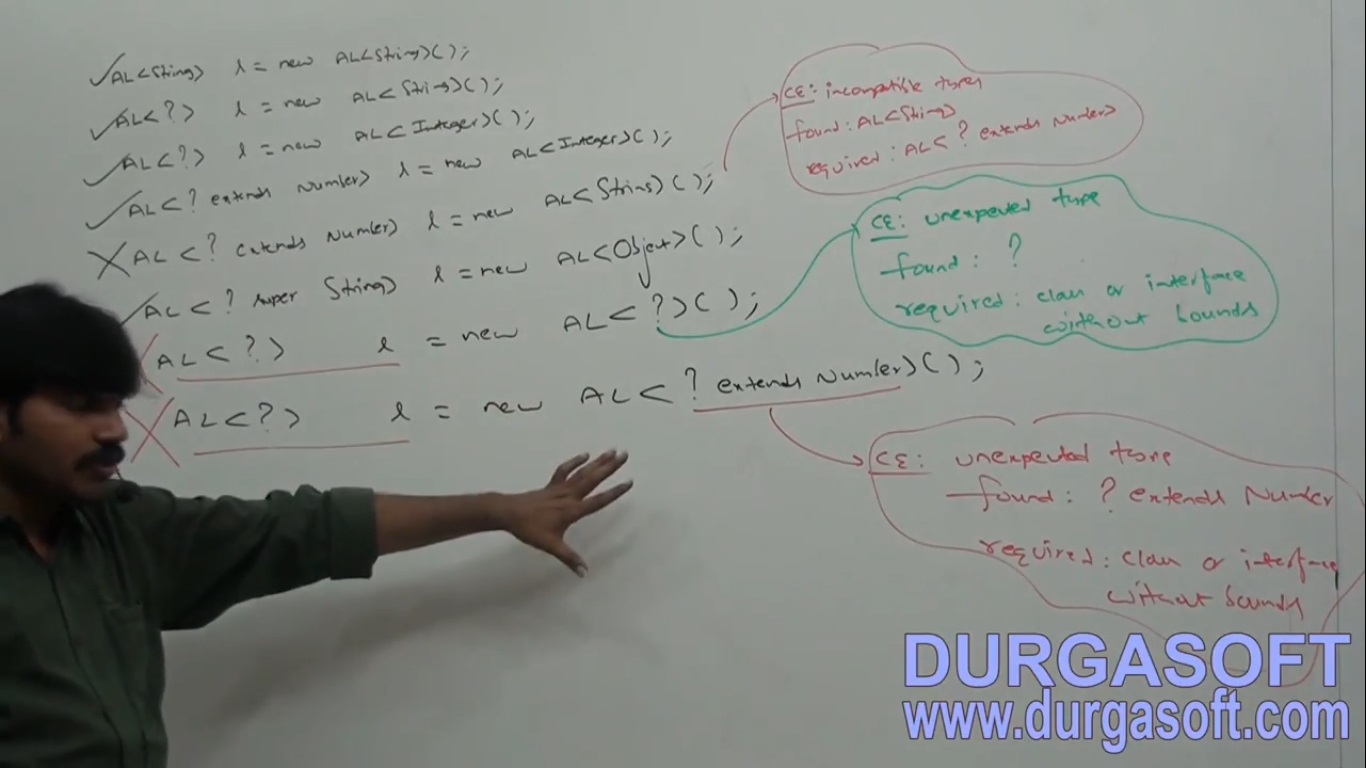 ✓ AL<String> l = new AL<String>();
✓ AL<?> l = new AL<String>();
✓ AL<?> l = new AL<Integer>();
✓ AL<? extends Number> l = new AL<Integer>();
X AL<? extends Number> l = new AL<String>();
✓ AL<? super String> l = new AL<Object>();
X AL<?> l = new AL<?>();
X AL<?> l = new AL<? extends Number>();
CE: incompatible types
found: AL<String>
required: AL<? extends Number>
CE: unexpected type
found: ?
required: class or interface
without bounds
CE: unexpected type
found: ? extends Number
required: class or interface
without bounds
DURGASOFT
www.durgasoft.com